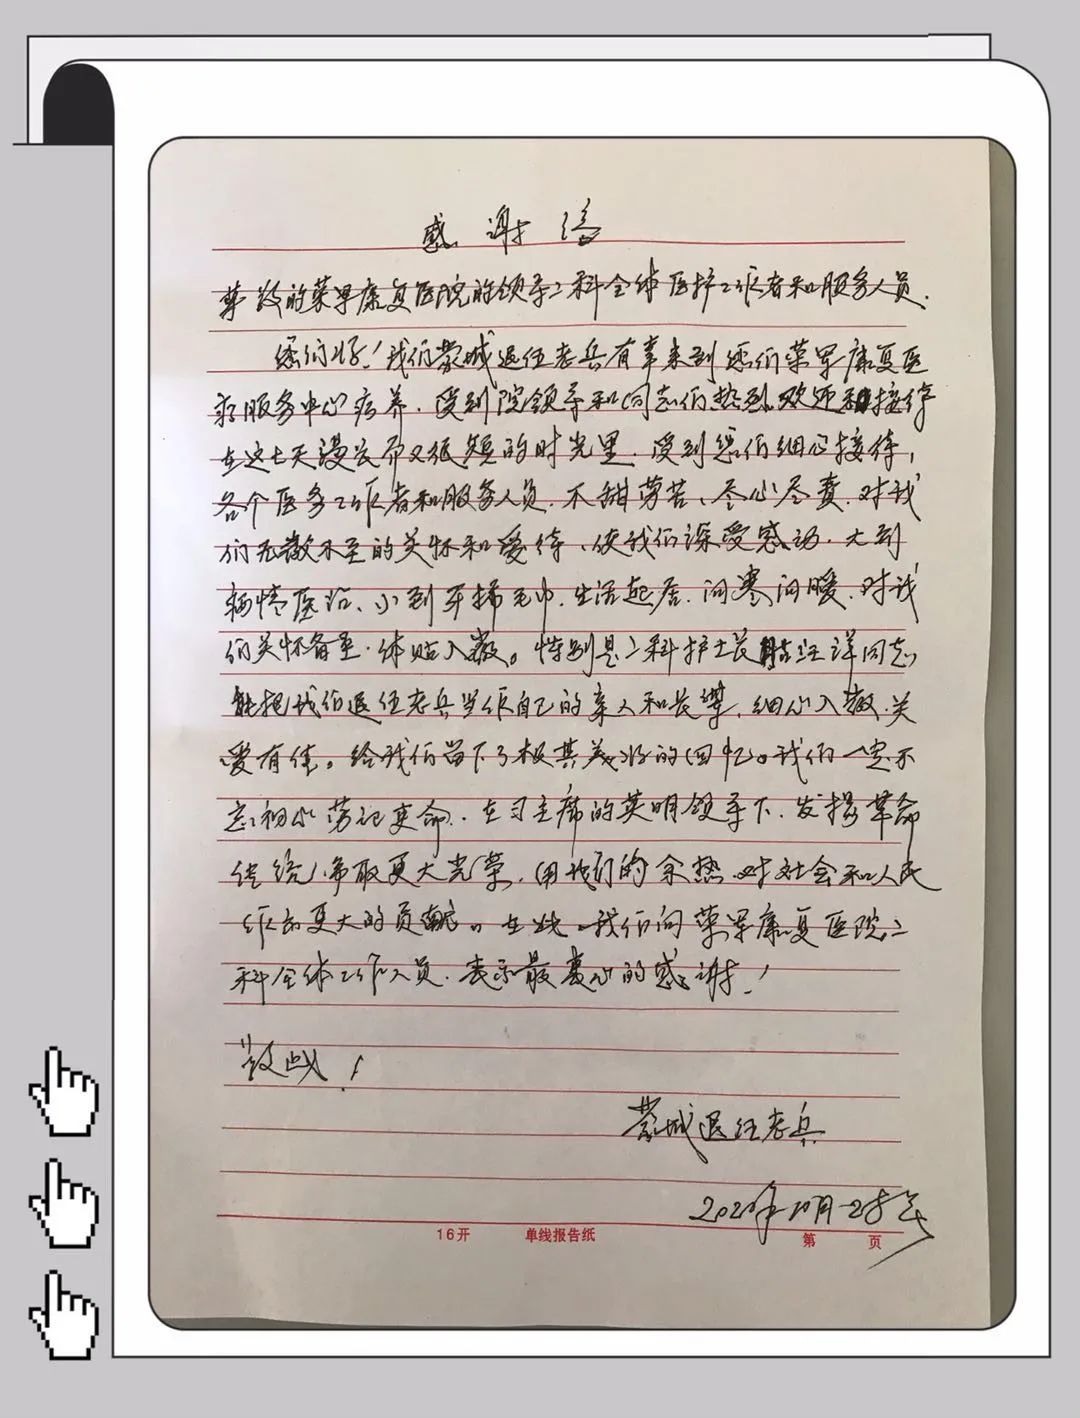 感谢信
尊敬的荣军康复医院的领导二科全体医护工作者和服务人员.
您们好!我们蒙城退任老兵有幸来到您们荣军康复医
疗服务中心疗养.受到院领导和同志们热烈欢迎和接待
在这七天漫长而又很短的时光里.受到您们细心接待,
各个医务工作者和服务人员.不甜劳苦、尽心尽责.对我
们无微不至的关怀和爱待、使我们深受感动.大到
病情医治、小到牙掃毛巾.生活起居.问寒问暖.对我
们关怀备至.体贴入微。特别是二科护士长汪洋同志
能把我们退任老兵当作自己的亲人和长辈.细心入微.关
爱有佳。给我们留下了极其美好的回忆。我们一定不
忘初心劳记使命.在习主席的英明领导下.发揚革命
传统,争取更大光荣.用我们的余热.对社会和人民
作出更大的贡献。在此.我们向荣军康复医院二
科全体工作人员.表示最衷心的感谢!
致以!
蒙城退任老兵
年10月28号
16开 单线报告纸 第 页